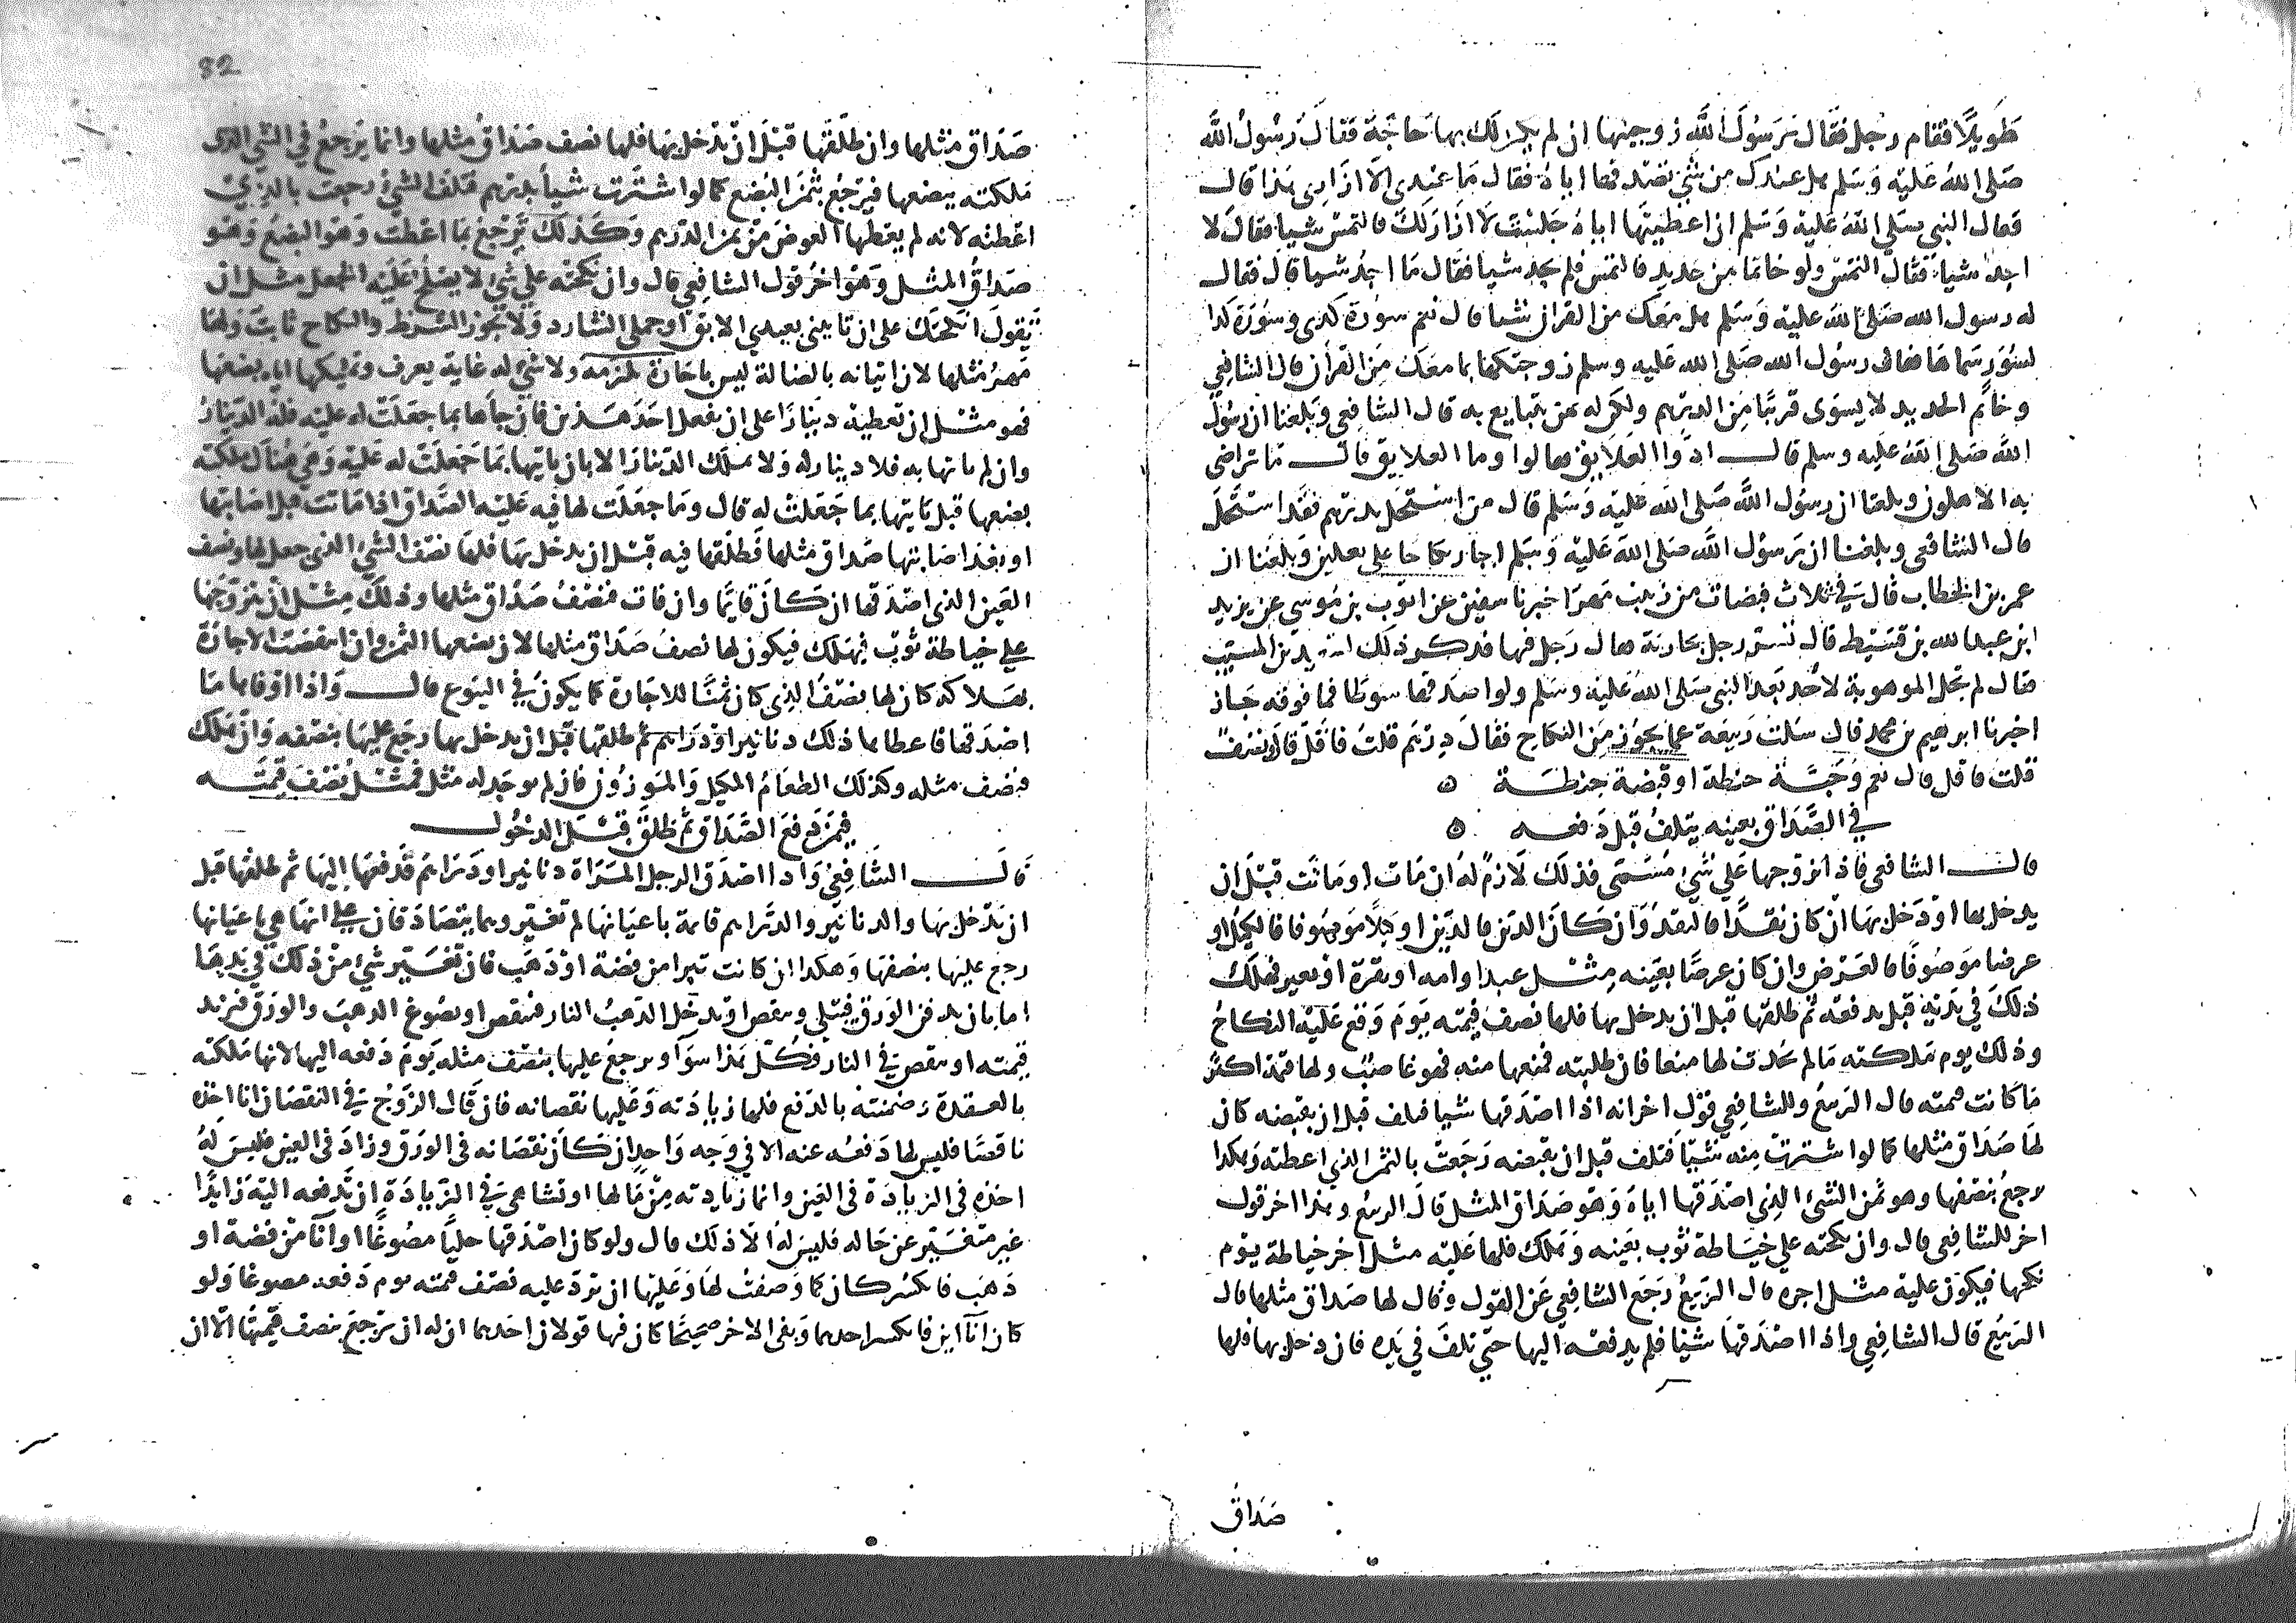 طَويلًا فقام رجل فقال يَرسُولَ اللَّه زوجينها ان لم يكن لك بها حَاجَة فقالَ رَسُولُ اللَّه
صَلى اللهُ عَليْه وَسَلم هل عندك من شي تصْدقها اباهُ فقال مَا عنْدى الّا ازَارى هَذا قال
فقال النبي صَلى اللهُ عَليْه وَسَلم ان اعطيتَها اباهُ جَلسْتَ لَا ازَارَ لَك فالتمسْ شيا فقالَ لا
اجدُ شيا فقال التمسْ ولو خاتما من حديد فالتمسَ فلم يجد شيا فقال مَا اجدُ شيا قال فقال
له رسول الله صَلى اللهُ عليْه وَسَلم هل مَعَك من القران شيا قال نعم سُورَة كذى وسُوْرَة كذا
لسُوَر سَماهَا فقال رسُول الله صَلى الله عَليه وسلم زوجتكها بما معَك مِنَ القرآن قال الشافِعي
وخاتم الحديد لا يسوَى قريبًا مِنَ الدرْهم ولكن له ثمن يتبايع به قال الشافعي وَبلغنا ان رسُولَ
اللَّه صَلى اللهُ عَليه وسلم قال ادّوا العَلايق قالوا وما العلايق قال مَا تراضَى
به الاهلون وبلغنا ان رسُول اللَّه صَلى الله عَليْه وَسَلم قال من اسْتحَلَّ بدرْهم فقدا سْتَحَلَّ
قال الشافعي وبلغنا ان رَسوْل اللَّه صَلى الله عَليْه وَسَلم اجاز نكاحا على نعلين وَبلغنا ان
عمر بن الخطاب قال في ثلاث قبضات من زبيب مَهرا خبرنا سفين عن ايوب بن مُوسى عن يزيد
ابن عبد الله بن قسَيْط قال تسرّ رجل بجارية فقال رَجل فيها فذكر ذلك لسعيد بن المسَيب
فقال لم تحل الموهوبة لاحد بَعدَ النبي صَلى الله عَليْه وسَلم ولو اصدقها سوطا فما فوقه جَاز
اخبرنا ابرهيم بن محمد قال سَألت رَبيعَة عما يجوْز مِنَ النكاح فقال دِرْهَم قلت فاقل قال ونصف
قلت فاقل قال نعم وَحَبَّة حنطة او قبضة حِنطَة ه
في الصَّدَاق بعينه يتلفُ قبل دَفعه ه
قال الشافعي فاذا تزوجها عَلي شي مُسَمّى فذلك لازمٌ لهُ ان مَات او مَاتت قبْلَ ان
يدخل بها اوْ دَخلَ بهَا انْ كان نقْدًا فالنقدُ وَان كانَ الدَّين فالدَّين او كيلًا مَوصُوفا فالكيل او
عرضا مَوصُوفًا فالعَرْض وان كان عرضًا بعَينه مِثْل عبد او امه او بقرة اوْ بعير فهلك
ذلكَ في يَدَيْه قبل يدفعَه ثم طلقهَا قبل ان يدخل بها فلها نصف قيمته يَوْمَ وَقع عَليْه النكاحُ
وذلك يوم مَلكته مَا لم يحدث لها منعا فان طلبته فمنعها منه فهو غاصبٌ ولها قيمته اكثر
مَا كانت قيمته قال الرَّبيعُ وللشافعي قوْل اخر انه اذا اصْدَقها شيا فتلف قبل ان يقبضه كان
لهَا صَدَاق مثلها كما لو اشترتْ مِنه شيْئا فتلف قبل ان يقبضه رَجَعتْ بالثمن الذي اعطته وَهكذا
يرجعُ بنصْفها وهو ثمن الشئ الذِي اصْدَقها اباهُ وَهوَ صَدَاق المثل قال الربيع وهذا اخر قول
اخر للشافعي قال وان نكحته على خيَاطة ثوْب بعَينه وَهَلكَ فلها عَليْه مثل اجر خياطة يوْم
نكحها فيكوْن عليه مثل اجره قال الرَّبيعُ رَجَعَ الشافِعي عَن القول وَقال لها صَدَاق مثلها قال
الرَّبيْع قال الشافِعي واذا اصْدَقهَا شيْا فلم يدفعْه اليها حتى تلفَ في يَدِه فان دخل بها فلها
صَدَاقُ
82
صَدَاق مثلها وان طَلَّقهَا قبْلَ انْ يَدْخل بهَا فلها نصف صَدَاقُ مثلها وانما يَرْجعُ في الشي الذى
مَلكته ببضعها فيَرْجعُ بثمَن البُضع كما لوا شتَرت شيأ بدرْهم فتلف الشي رجعت بالذِيْ
اعطته لانه لم يعطها العوضَ مِنْ ثمن الدّرْهم وَكذلك يرْجعُ بمَا اعْطت وَهوَ البُضعُ وَهوَ
صَدَاقُ المثل وَهوَ اخرُ قوْل الشافِعي قال وان نكحْته على شي لا يصْلحُ عَليْه الجعل مثل انْ
يَقولَ انكحتك على ان تاتيني بعبدي الابق او جملي الشارد وَلا يجوز الشرط والنكاح ثابت وَلهَا
مَهرُ مثلها لان اتيانه بالضالة ليس باجَارَة تلزمه ولا شي له غاية يعرف وتمليكها اياه بضعَها
فهو مثل ان تعطيه دينارًا على ان يفعل احَدَ هَذين فان جاها بما جَعَلتْ له عليْه فلهُ الدّينارُ
وان لم ياتها به فلا دينار له وَلا يملك الدّينارَ الا بان ياتيها بمَا جَعَلتْ له عَليْه وَهي هُنا لَ ملكته
بضعها قبل يَاتيَها بما جَعَلتْ له قال وَمَا جعَلت لها فيه عَليْه الصَّداق اذا مَاتت قبل اصابتها
او بعْد اصَابتها صَداق مثلها فطلقها فيه قبْل ان يدخل بهَا فلها نصْف الشي الذى جعل لها ونصف
العَين الذى اصْدَقها ان كانَ قايمًا وان فات فنصْفُ صَدَاق مثلها وذلك مِثْل انْ يتزوّجَها
على خياطة ثوْب فيَهلك فيكون لها نصفُ صَدَاق مثلها لان بضعها الثمن وان انتقضت الاجَارَة
بهَلاكه كان لها نصْفُ الذي كان ثمنًا للاجَارة كما يكوْنُ في البيوع قال وَاذا اوْفاهَا مَا
اصْدَقها فاعطاها ذلك دنانير اوْ دَرَاهم ثم طلقها قبْل ان يدخل بها رَجَعَ عليْها بنصفه وَانْ هَلك
فنصف مثله وكذلك الطعَامُ المكيل وَالموْزوْن فان لم يوجَد له مثل فمثْلُ نصْف قيمَته
فيمَن دَفعَ الصَّدَاق ثمَّ طَلقَ قبْلَ الدخُول
قَالَ الشافِعِيْ وَاذا اصْدَق الرجل المَرَاة دنانير اودَرَاهمَ فدفعَها إليهَا ثم طلقها قبل
ان يدْخل بهَا والدنانيْر والدَّراهم قايمة باعيَانهَا لم تتغيَّر وهما يتصَادَقان على انهَا هي باعيَانها
رجعَ عليْها بنصفهَا وَهكذا ان كانت تبرا من فضة اوْ ذهَب فان تغيَّر شيْ مِنْ ذلك في يَدِهَا
اما بان يدفن الوَرَق فيَبْلى وينقص اوْ يدْخل الذهبُ النار فينقص او يصُوغ الذهب والورَق فيزيد
قيمته او ينقص في النار فكُلّ هَذا سَوآ ويرجعُ عليها بنصف مثله يَوم دَفعه اليها لانها مَلكته
بالعقدة وَضمنته بالدفع فلها زيادته وَعَليها نقصانه فان قالَ الزوجُ في النقصَان انا اخذه
ناقصًا فليس لها دَفعُه عنه الا في وَجه وَاحدٍ ان كانَ نقصَانه فى الورَق وزادَ فى العين فليسَ لهُ
اخذه فى الزيادَة فى العَين وانما زيادته مِنْ مَالها او تشاهي في الزّيادَة ان تدفعه اليْه زَايدًا
غير متغيَّر عن حَاله فليسَ لهُ الا ذلك قال ولو كان اصْدَقها حليًا مصُوغًا او اناً مِنْ فضة او
ذهَب فانكسر كان كما وَصفتُ لهَا وَعَليها ان تردّ عليه نصْف قيمته يوم دَفعه مصوغا وَلو
كان انآاين فانكسر احدهما وَبقى الاخر صحيحًا كان فيها قولان احَدهما ان له ان يَرْجعَ بنصف قيمَتهَا الّا ان